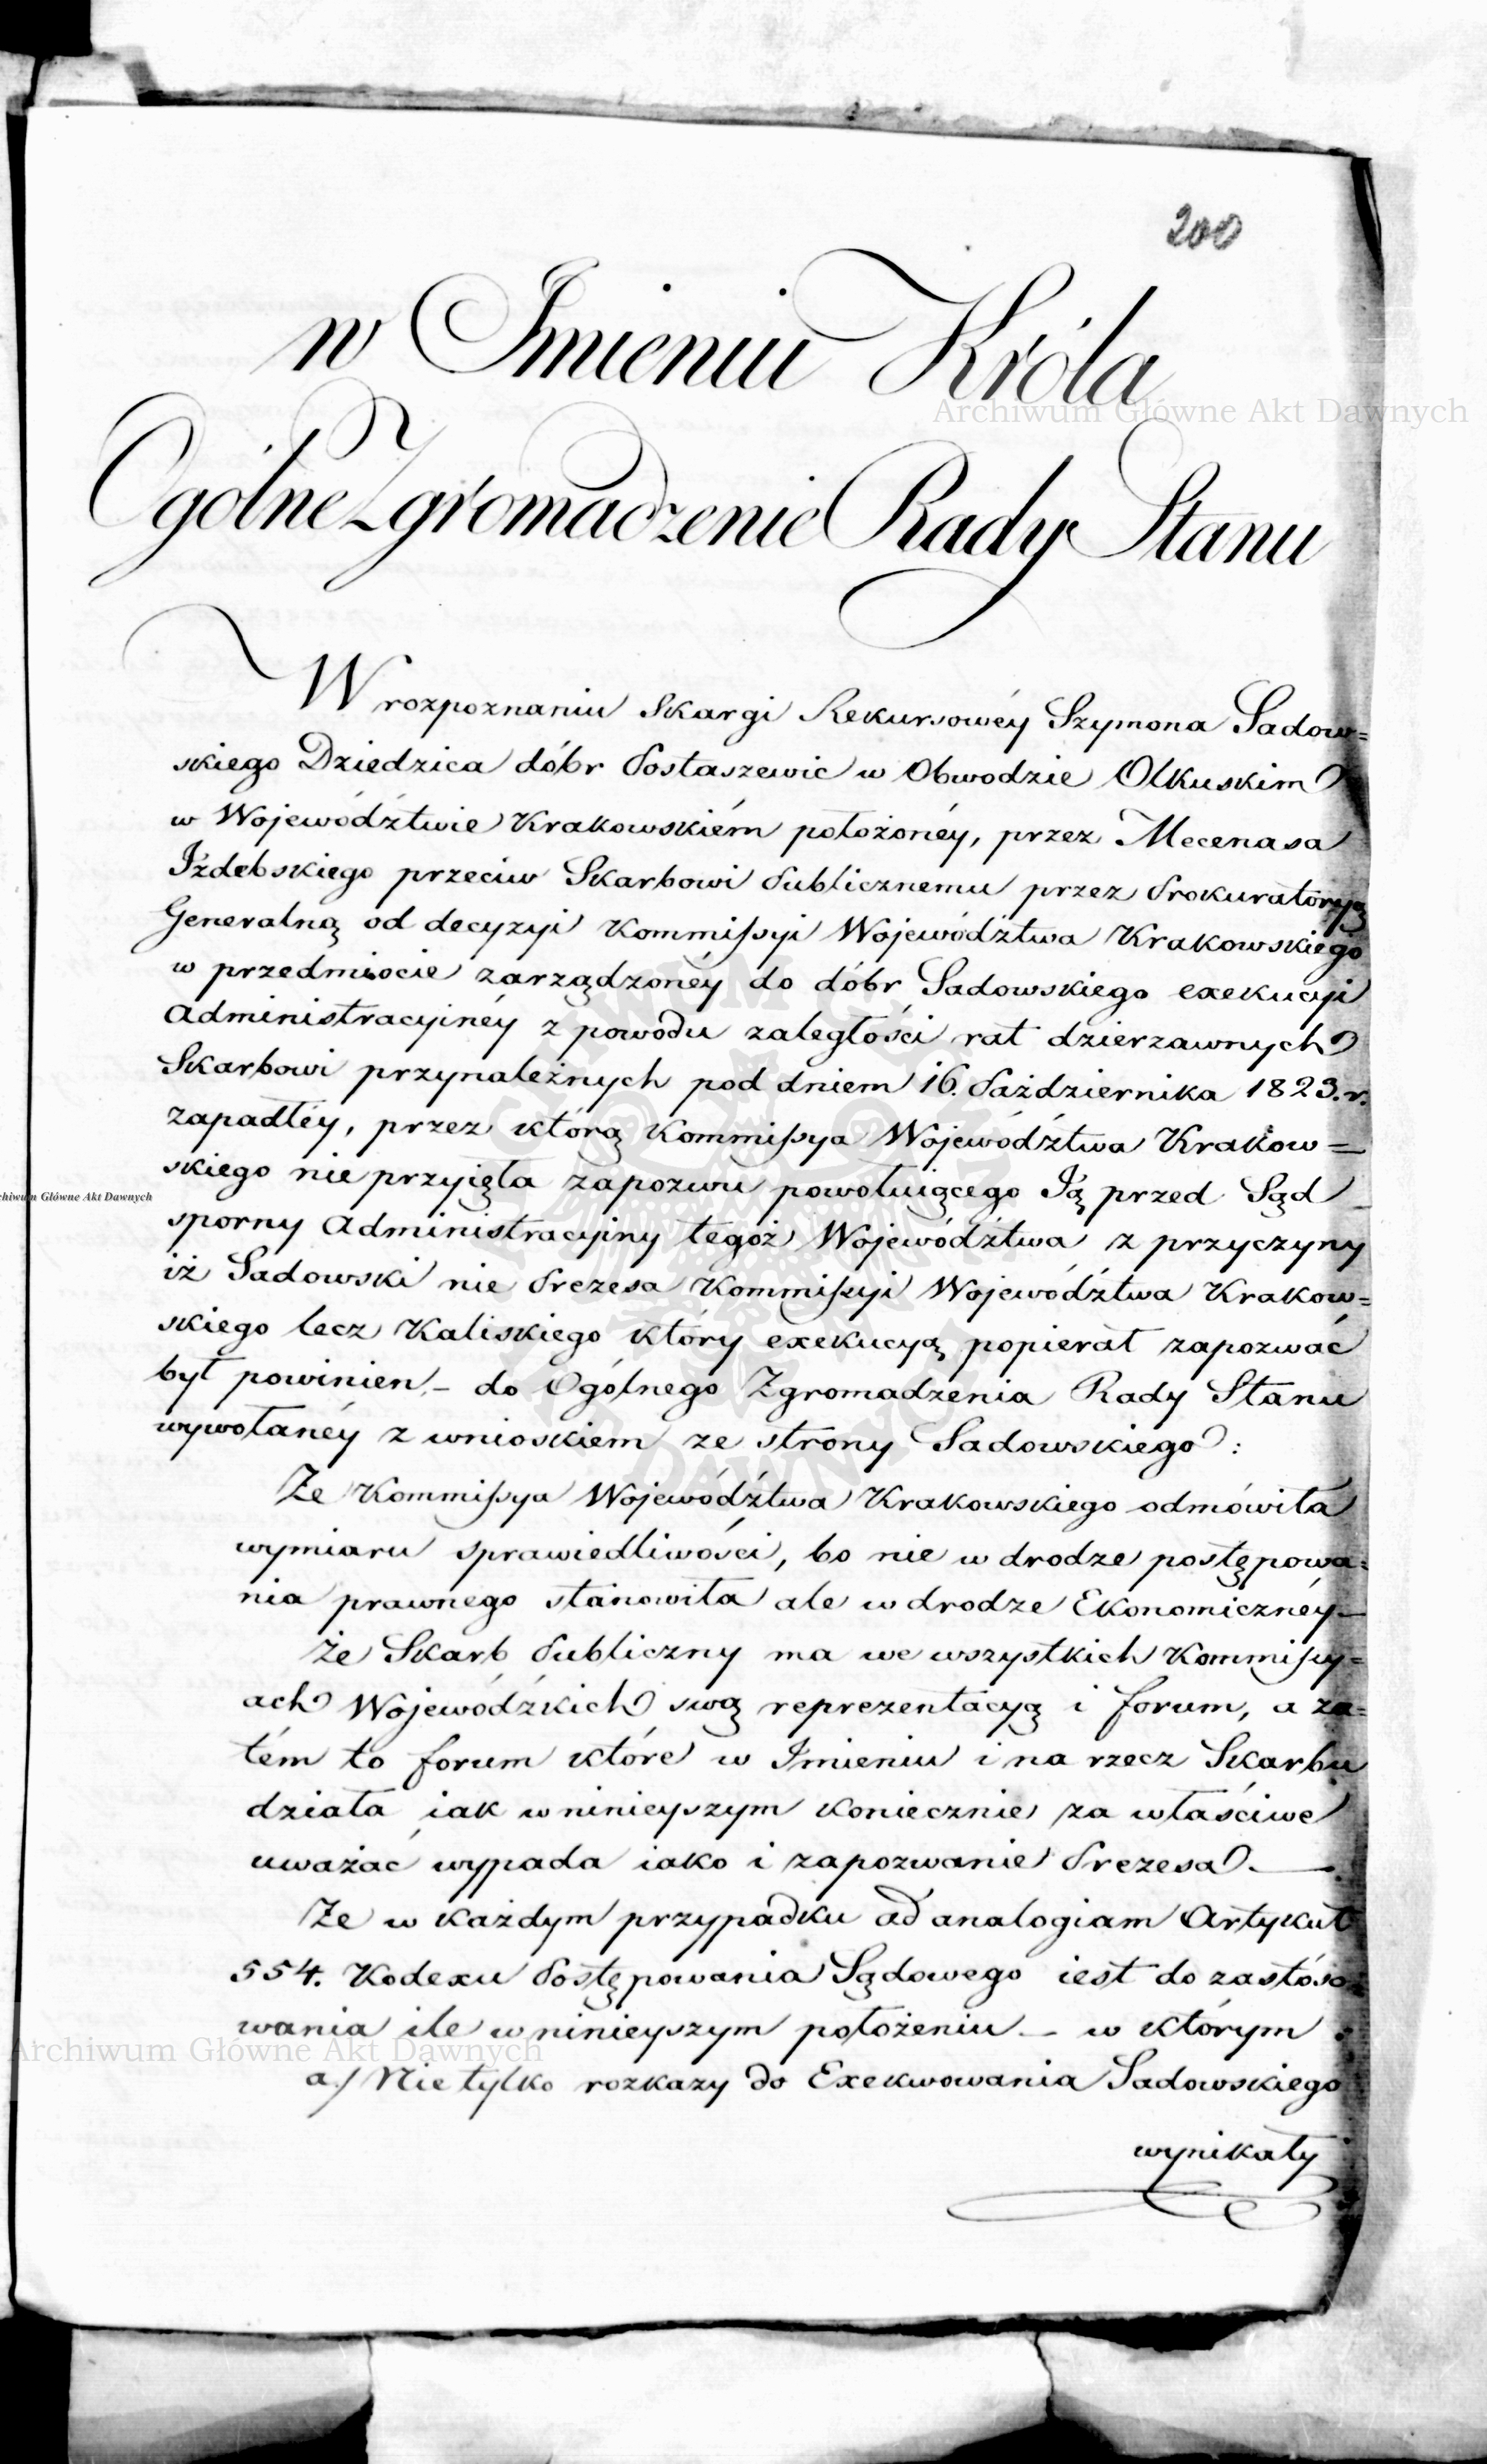 200
w Imieniu Króla
Ogólne Zgromadzenie Rady Stanu
W rozpoznaniu Skargi Rekursowéy Szymona Sadow=
skiego Dziedzica dóbr Postaszewic w Obwodzie Olkuskim
w Województwie Krakowskiém położonéy, przez Mecenasa
Izdebskiego przeciw Skarbowi Publicznemu przez Prokuratoryą
Generalną od decyzyi Kommissyi Województwa Krakowskiego
w przedmiocie zarządzonéy do dóbr Sadowskiego exekucyi
Administracyinéy z powodu zaległości rat dzierzawnych
Skarbowi przynależnych pod dniem 16. Października 1823. r.
zapadłéy, przez którą Kommissya Województwa Krakow=
skiego nie przyięła zapozwu powołuiącego Ją przed Sąd
sporny Administracyiny tegoż Województwa z przyczyny
iż Sadowski nie Prezesa Kommissyi Województwa Krakow=
skiego lecz Kaliskiego który exekucyą popierał zapozwać
był powinien, – do Ogólnego Zgromadzenia Rady Stanu
wywołanéy z wnioskiem ze strony Sadowskiego:
Że Kommissya Województwa Krakowskiego odmówiła
wymiaru sprawiedliwości, bo nie w drodze postępowa=
nia prawnego stanowiła ale w drodze Ekonomicznéy –
Że Skarb Publiczny ma we wszystkich Kommissy=
ach Wojewódzkich swą reprezentacyą i forum, a za=
tém to forum które w Imieniu i na rzecz Skarbu
działa iak w ninieyszym koniecznie za właściwe
uważać wypada iako i zapozwanie Prezesa. —
Że w każdym przypadku ad analogiam Artykuł
554. Kodexu Postępowania Sądowego iest do zastóso=
wania ile w ninieyszym położeniu – w którym :
a/ Nie tylko rozkazy do Exekwowania Sadowskiego
wynikały
Archiwum Główne Akt Dawnych
Archiwum Główne Akt Dawnych
chiwum Główne Akt Dawnych